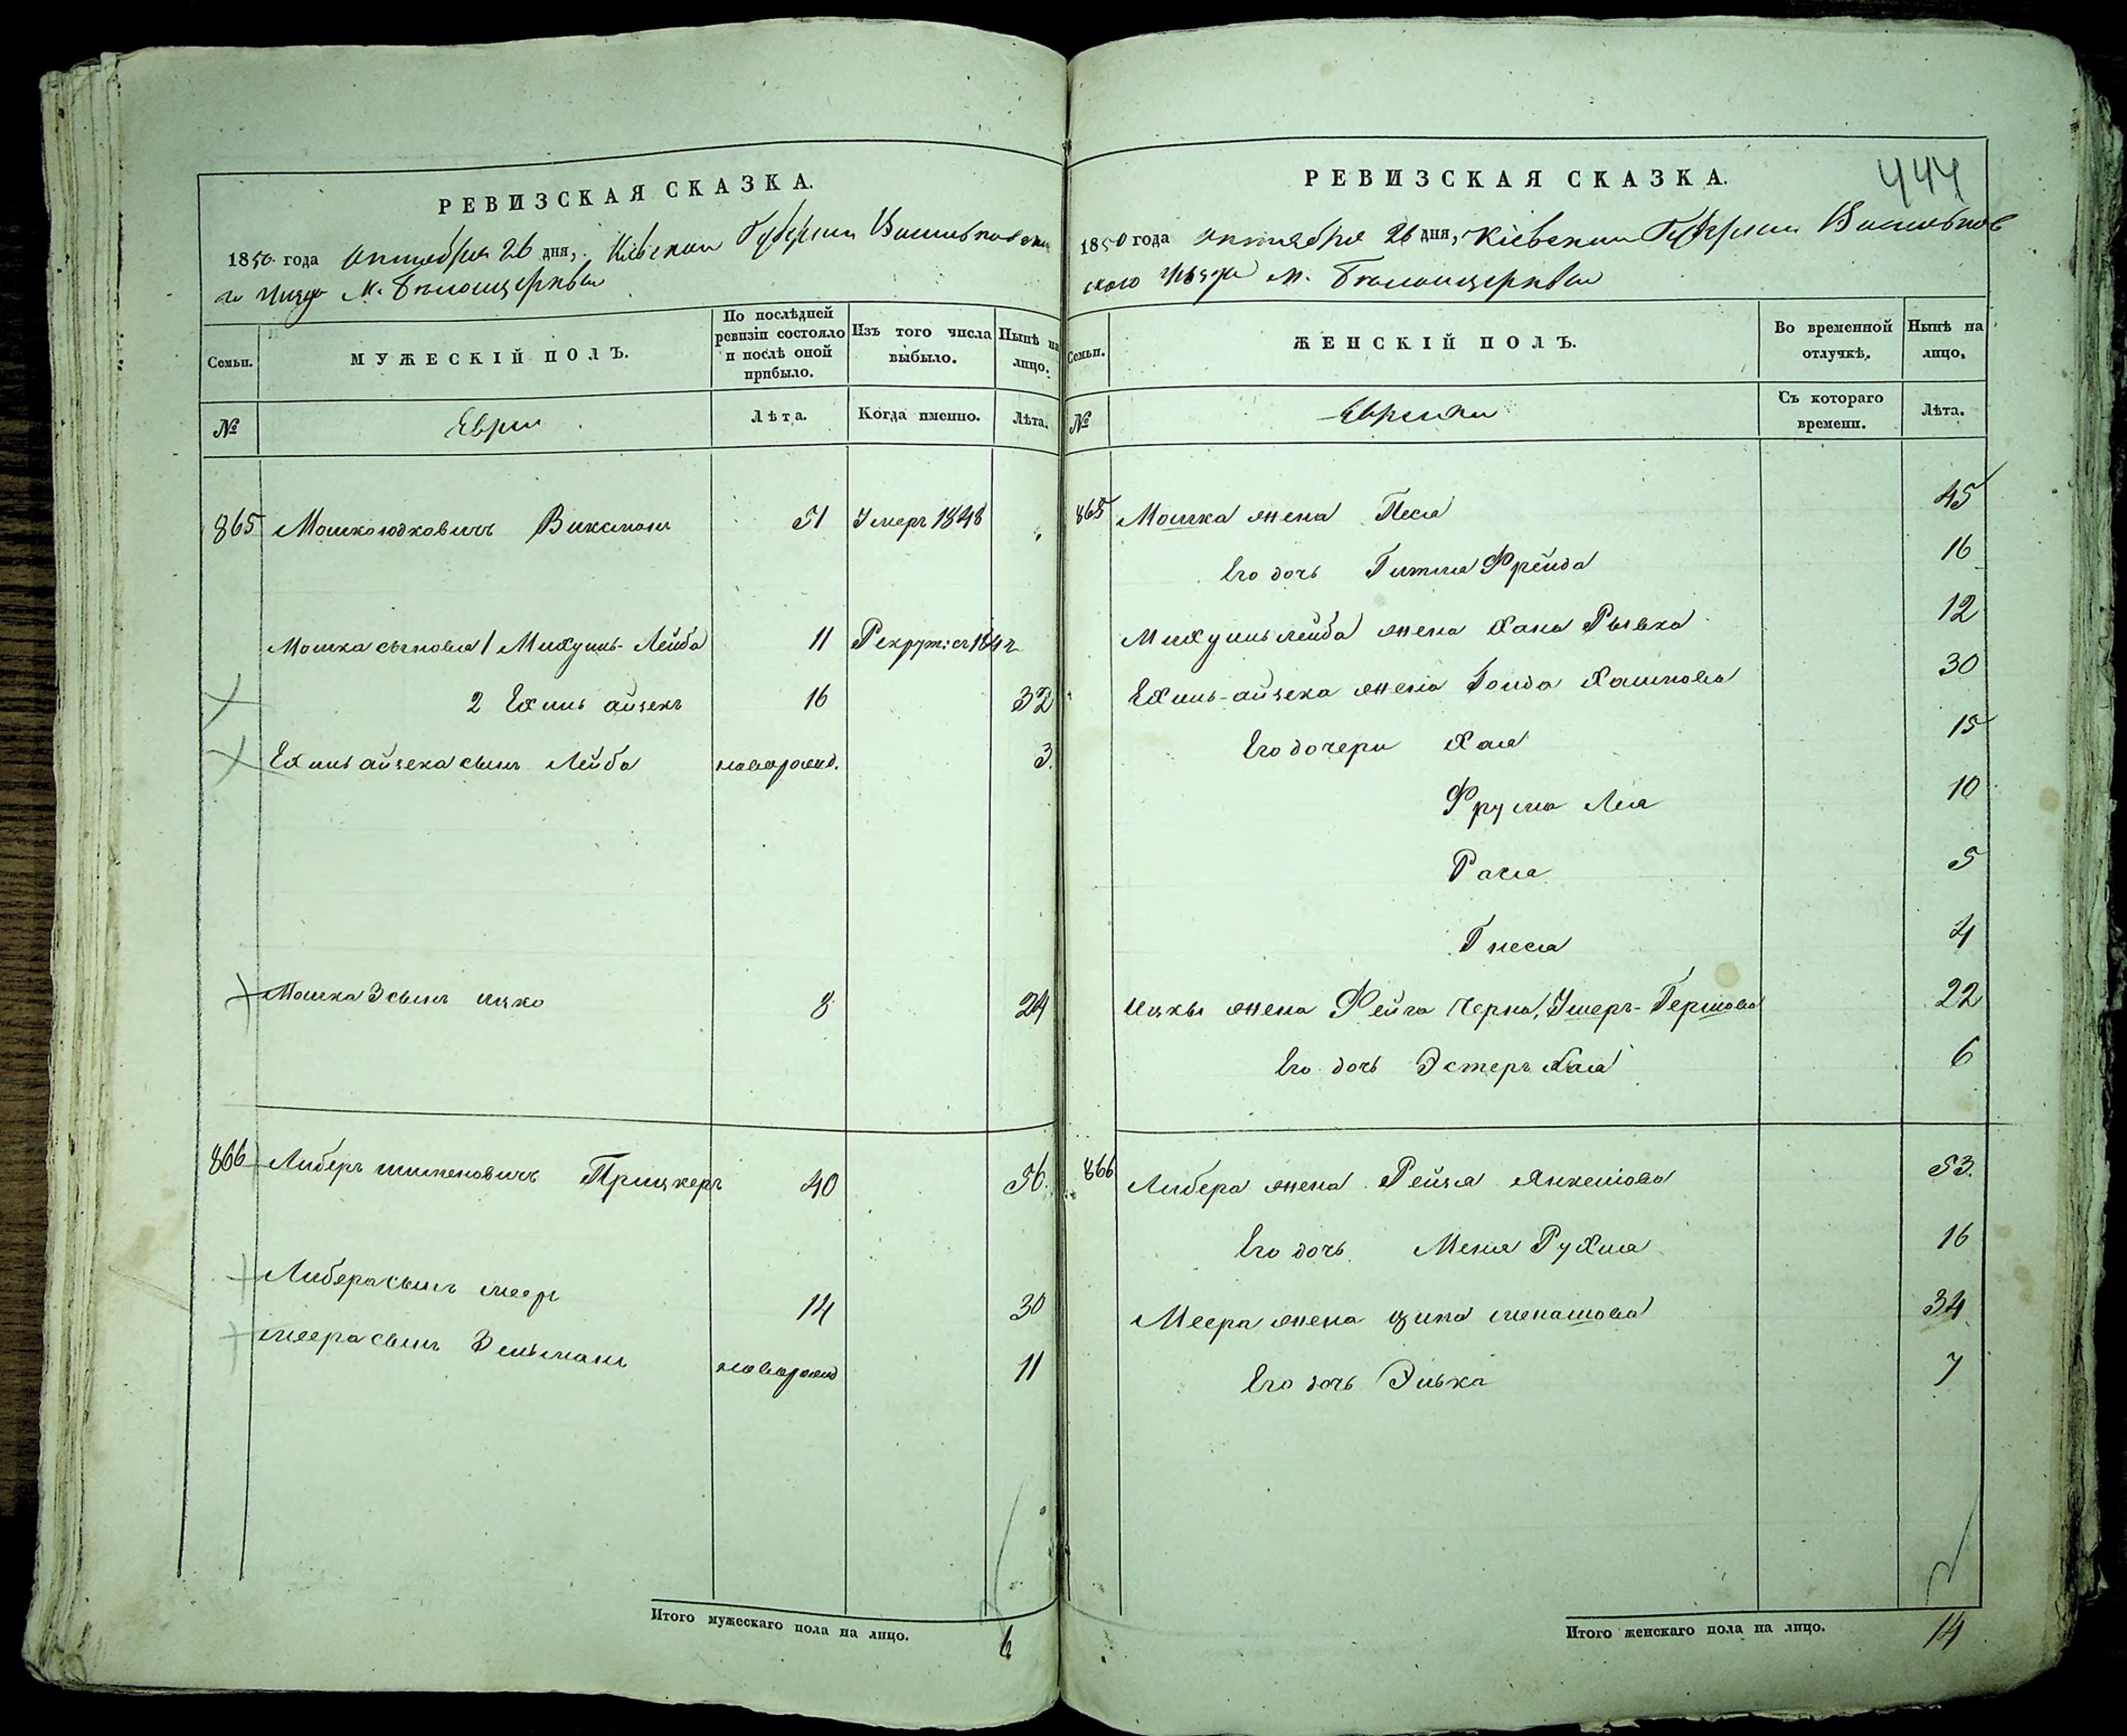 РЕВИЗСКАЯ СКАЗКА.
1850 года октября 26 дня, Кіевской Губерніи Васильковска
го уѣзда м. Бѣлоцеркви
Семьи.
МУЖЕСКІЙ ПОЛЪ.
По послѣдней ревизіи состояло и послѣ оной прибыло.
Изъ того числа выбыло.
Нынѣ на лицо.
№
Евреи
Лѣта.
Когда именно.
Лѣта.
865 Мошко Юдковичъ Виксманъ 51 Умеръ 1848
Мошка сыновья 1 Михуиль-Лейба 11 Рекрут: съ 184
2 Ехиль айзекъ 16 32
Ехиль айзека сынъ Лейба новорожд. 3.
Мошка 3 сынъ ицко 8 24
866 Либеръ шименовичъ Прицкеръ 40 56
Либера сынъ меер 14 30
меера сынъ Зельманъ новорожд 11
Итого мужескаго пола на лицо. 6
444
РЕВИЗСКАЯ СКАЗКА.
1850 года октября 26 дня, Кіевской Губерніи Васильков
ского уѣзда м. Бѣлоцеркви
Семьи.
ЖЕНСКІЙ ПОЛЪ.
Во временной отлучкѣ.
Нынѣ на лицо.
№
Еврейки
Съ котораго времени.
Лѣта.
865 Мошка жена Песя 45
Его дочь Гитля Фрейда 16
Михуиль лейба жена Хана Рывка 12
Ехиль-айзека жена Хаимова 30
Его дочери Хая 15
Фрума Лея 10
Рася 5
Гнеся 4
Ицки жена Фейга Черна, Умеръ-Гершова 22
Его дочь Эстеръ Хая 6
866 Либера жена Рейзя Янкелова 53.
Его дочь Меня Рухля 16
Меера жена ципа менашова 34
Его дочь Элька 7
Итого женскаго пола на лицо. 14